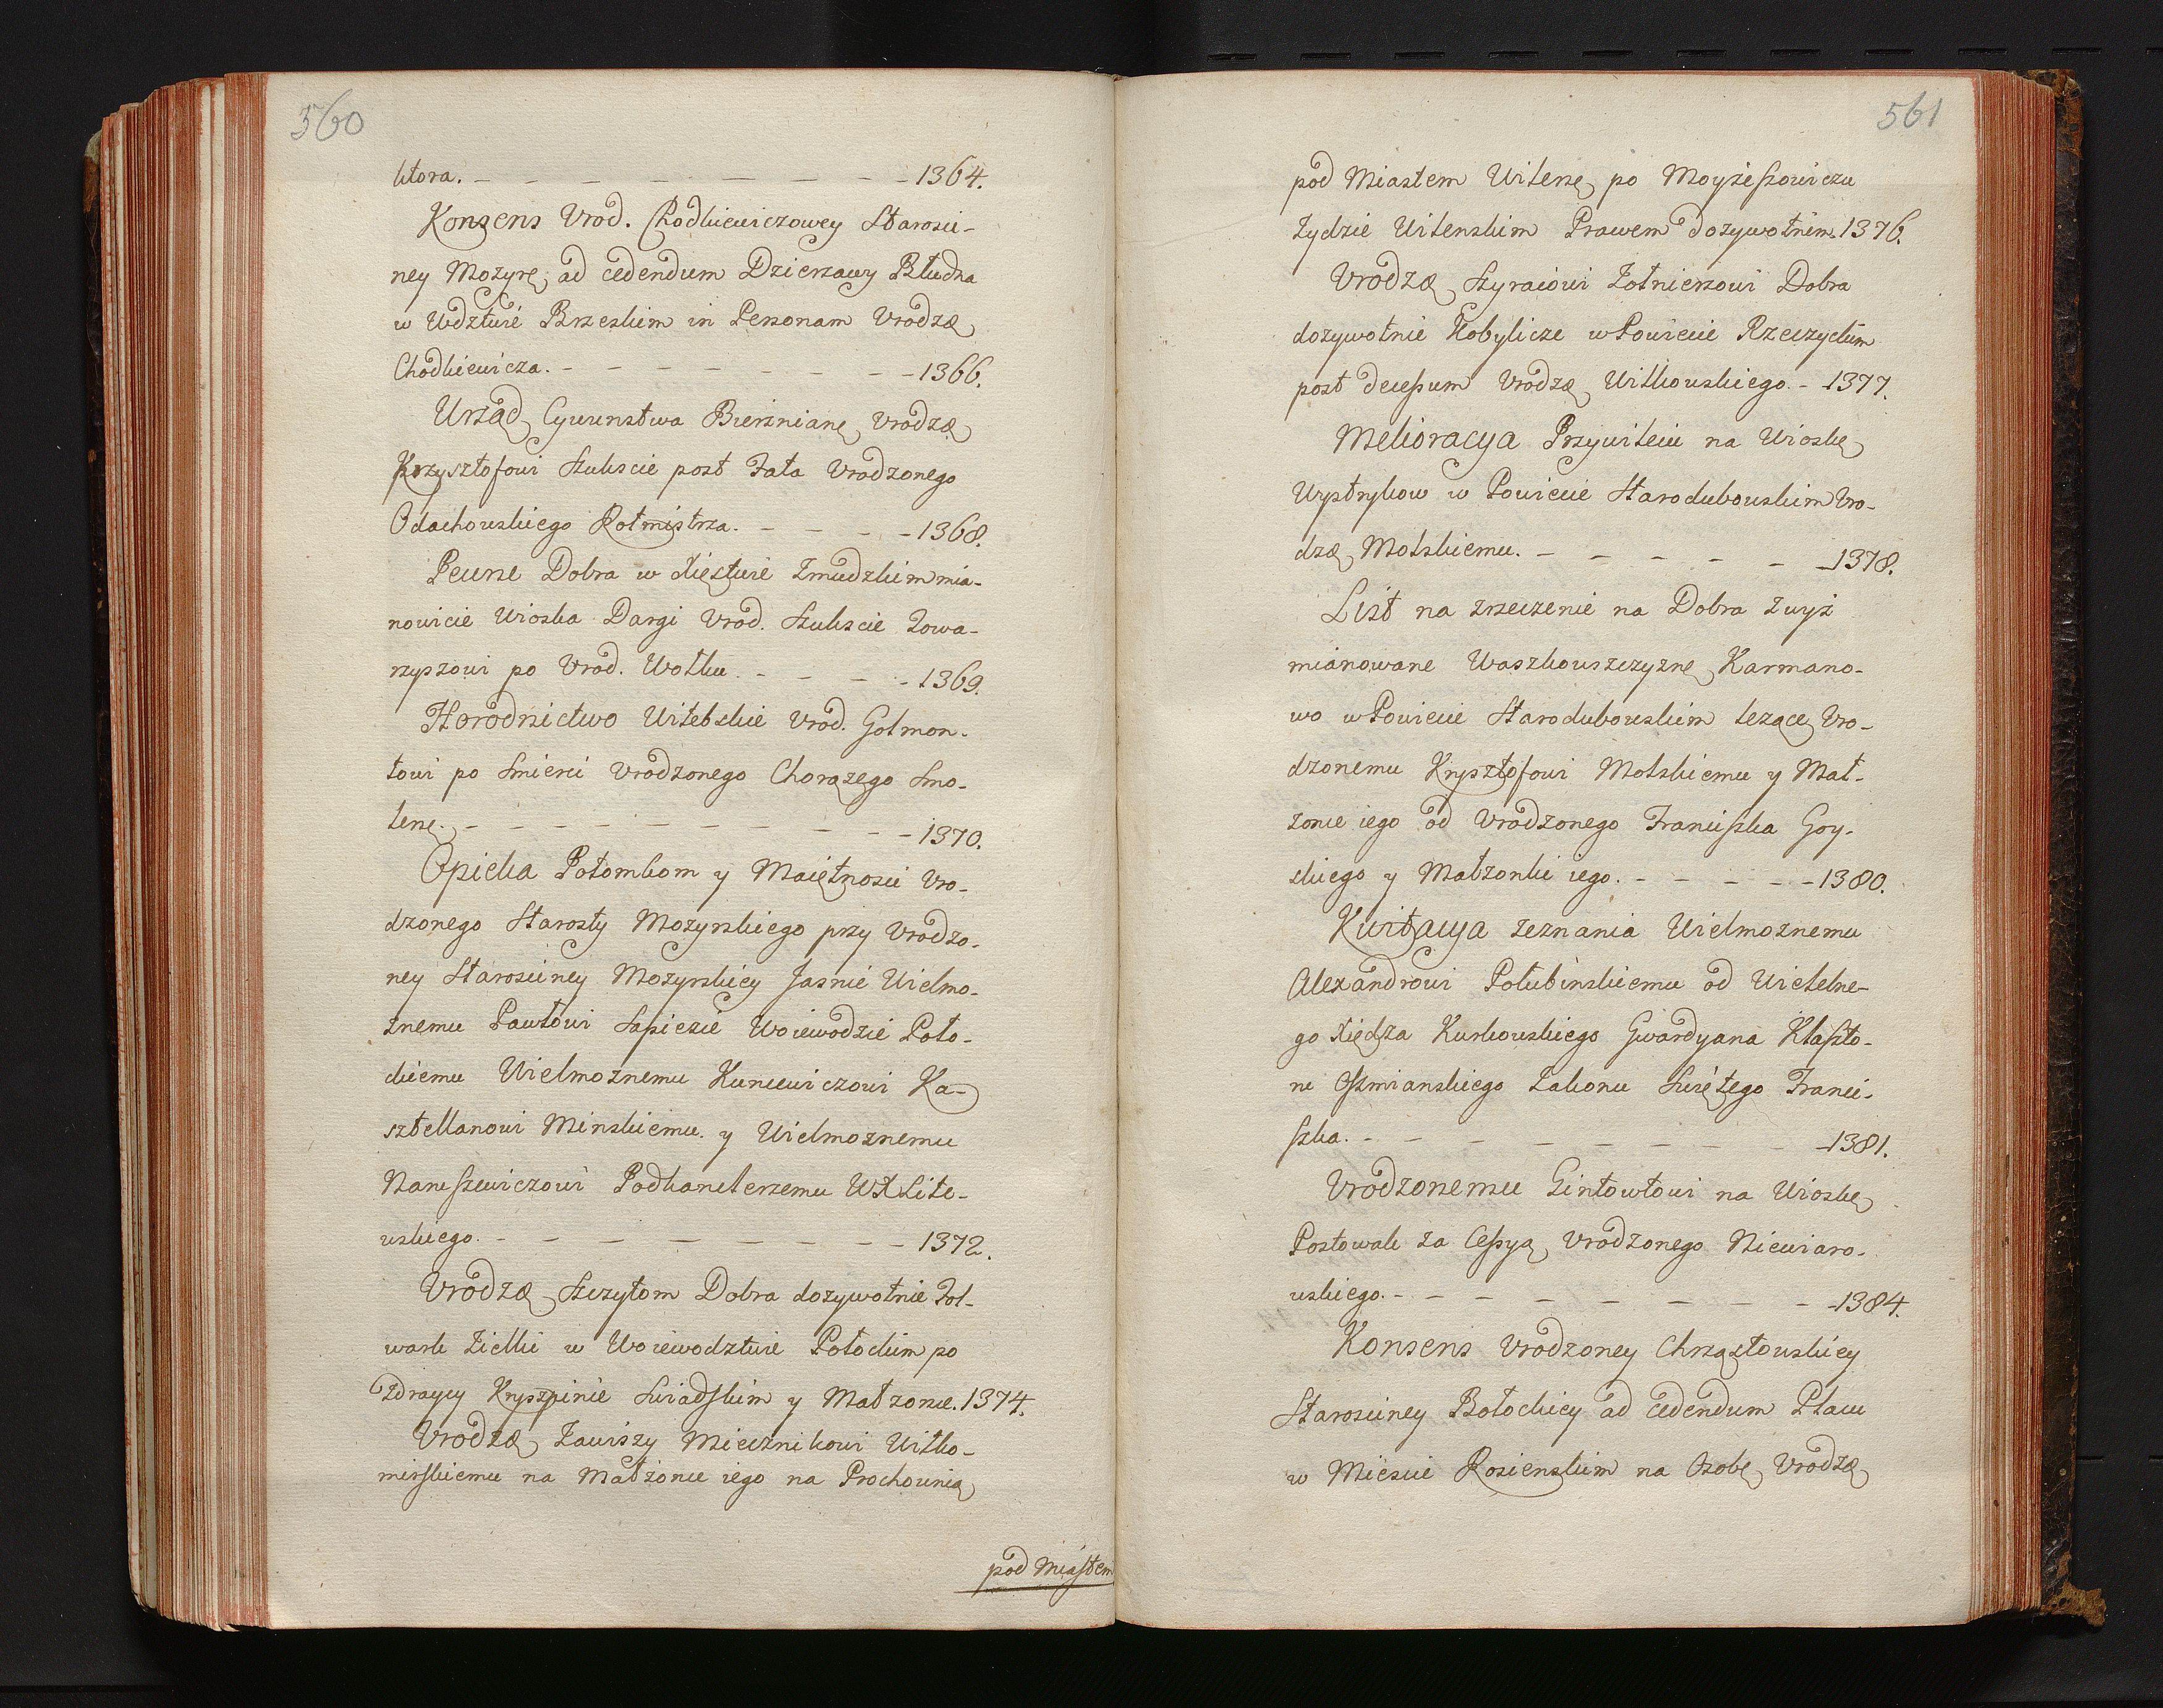 560
ktora. – – – – – – – – 1364.
Konsens Vrod. Chodkiewiczowey Starosci-
ney Mozyrs: ad cedendum Dzierzawy Błudna
w Wdztwie Brzeskim in Personam Vrodzo
Chodkiewicza. – – – – – – – 1366.
Urząd Cywunstwa Bierzniane Vrodzo
Krzysztofowi Szukscie post Fata Vrodzonego
Odachowskiego Rotmistrza. – – – – 1368.
Pewne Dobra w Xięstwie Zmudzkim mia-
nowicie Wioska Dargi Vrod. Szukscie Towa-
rzyszowi po Vrod. Wołku. – – – – 1369.
Horodnictwo Witebskie Vrod. Golmon-
towi po Smierci Vrodzonego Chorązego Smo-
lens: – – – – – – – – – 1370.
Opieka Potomkom y Maiętnosci Vro-
dzonego Starosty Mozyrskiego przy Vrodzo-
ney Starosciney Mozyrskiey Jasnie Wielmo-
znemu Pawłowi Sapiezie Woiewodzie Poło-
ckiemu Wielmoznemu Kuncewiczowi Ka-
sztellanowi Minskiemu. y Wielmoznemu
Naruszewiczowi Podkanclerzemu WXLite-
wskiego. – – – – – – – – 1372.
Vrodzo Szczytom Dobra dozywotnie Fol-
wark Zielki w Woiewodztwie Połockim po
Zdraycy Kryszpinie Swiadskim y Małzonce. 1374.
Vrodzo Zawiszy Miecznikowi Wiłko-
mirskiemu na Małzonce iego na Prochownią
pod Miastem
561
pod Miastem Wilens: po Moyżeszowiczu
Zydzie Wilenskim Prawem dozywotnim. 1376.
Vrodzo Szyraiowi Zołnierzowi Dobra
dozywotnie Kobylicze w Powiecie Rzeczyckim
post decessum Vrodzo Witkowskiego. – 1377.
Melioracya Przywileiu na Wioskę
Wystrykow w Powiecie Starodubowskim Vro-
dzo Molskiemu. – – – – – 1378.
List na zrzeczenie na Dobra zwyż
mianowane Waszkowszczyznę Karmano-
wo w Powiecie Starodubowskim lezące Vro-
dzonemu Krysztofowi Molskiemu y Mał-
zonce iego od Vrodzonego Franciszka Goy-
skiego y Małzonki iego. – – – – – 1380.
Kwitacya zeznania Wielmoznemu
Alexandrowi Połubinskiemu od Wielebne-
go Xiędza Kurkowskiego Gwardyana Klaszto-
ru Oszmianskiego Zakonu Swiętego Franci-
szka. – – – – – – – – 1381.
Vrodzonemu Gintowtowi na Wioskę
Postowale za Cessyą Vrodzonego Niewiaro-
wskiego. – – – – – – – – 1384.
Konsens Vrodzoney Chrząstowskiey
Starosciney Bołockiey ad cedendum Placu
w Miescie Rosienskim na Osobę Vrodzo